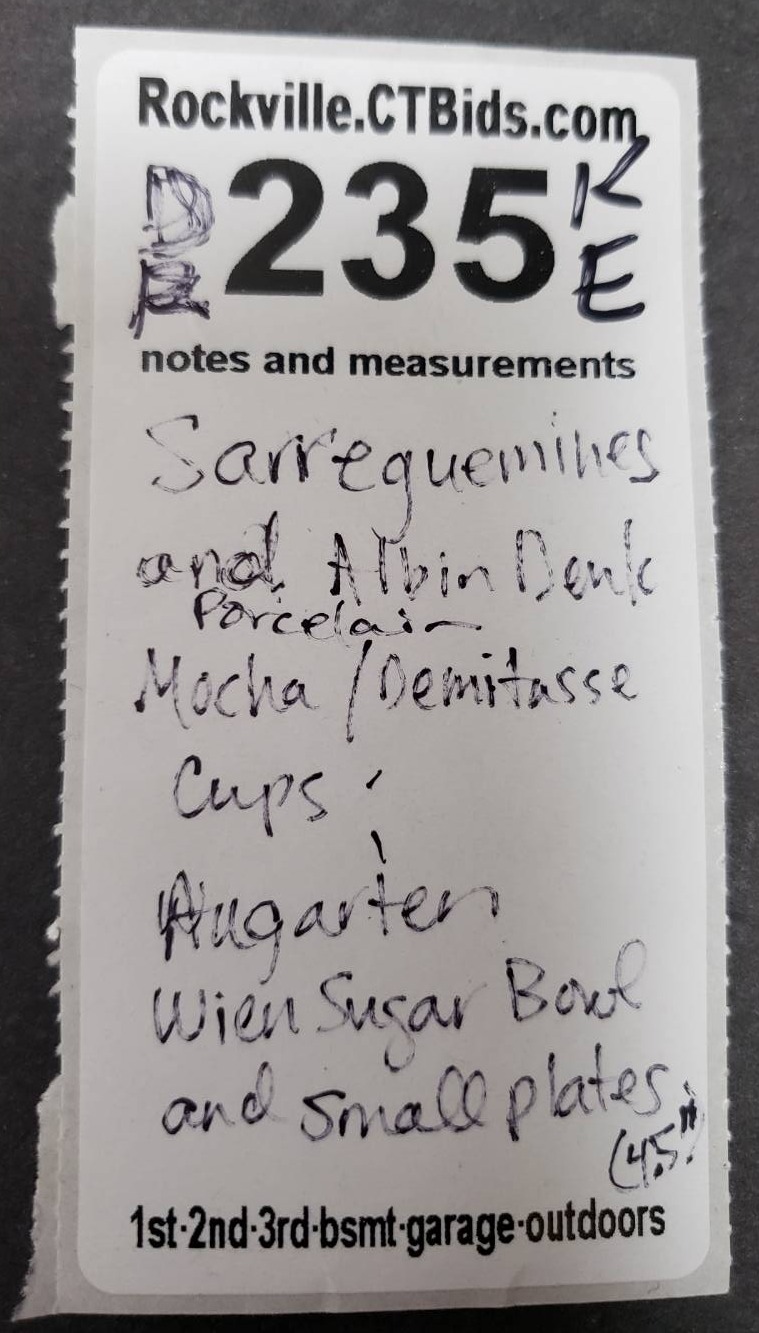 Rockville.CTBids.com
235 K
E
notes and measurements
Sarreguemines
and Albin Denk
Porcelain
Mocha / Demitasse
Cups ;
Augarten
Wien Sugar Bowl
and small plates
(4.5")
1st·2nd·3rd·bsmt·garage·outdoors